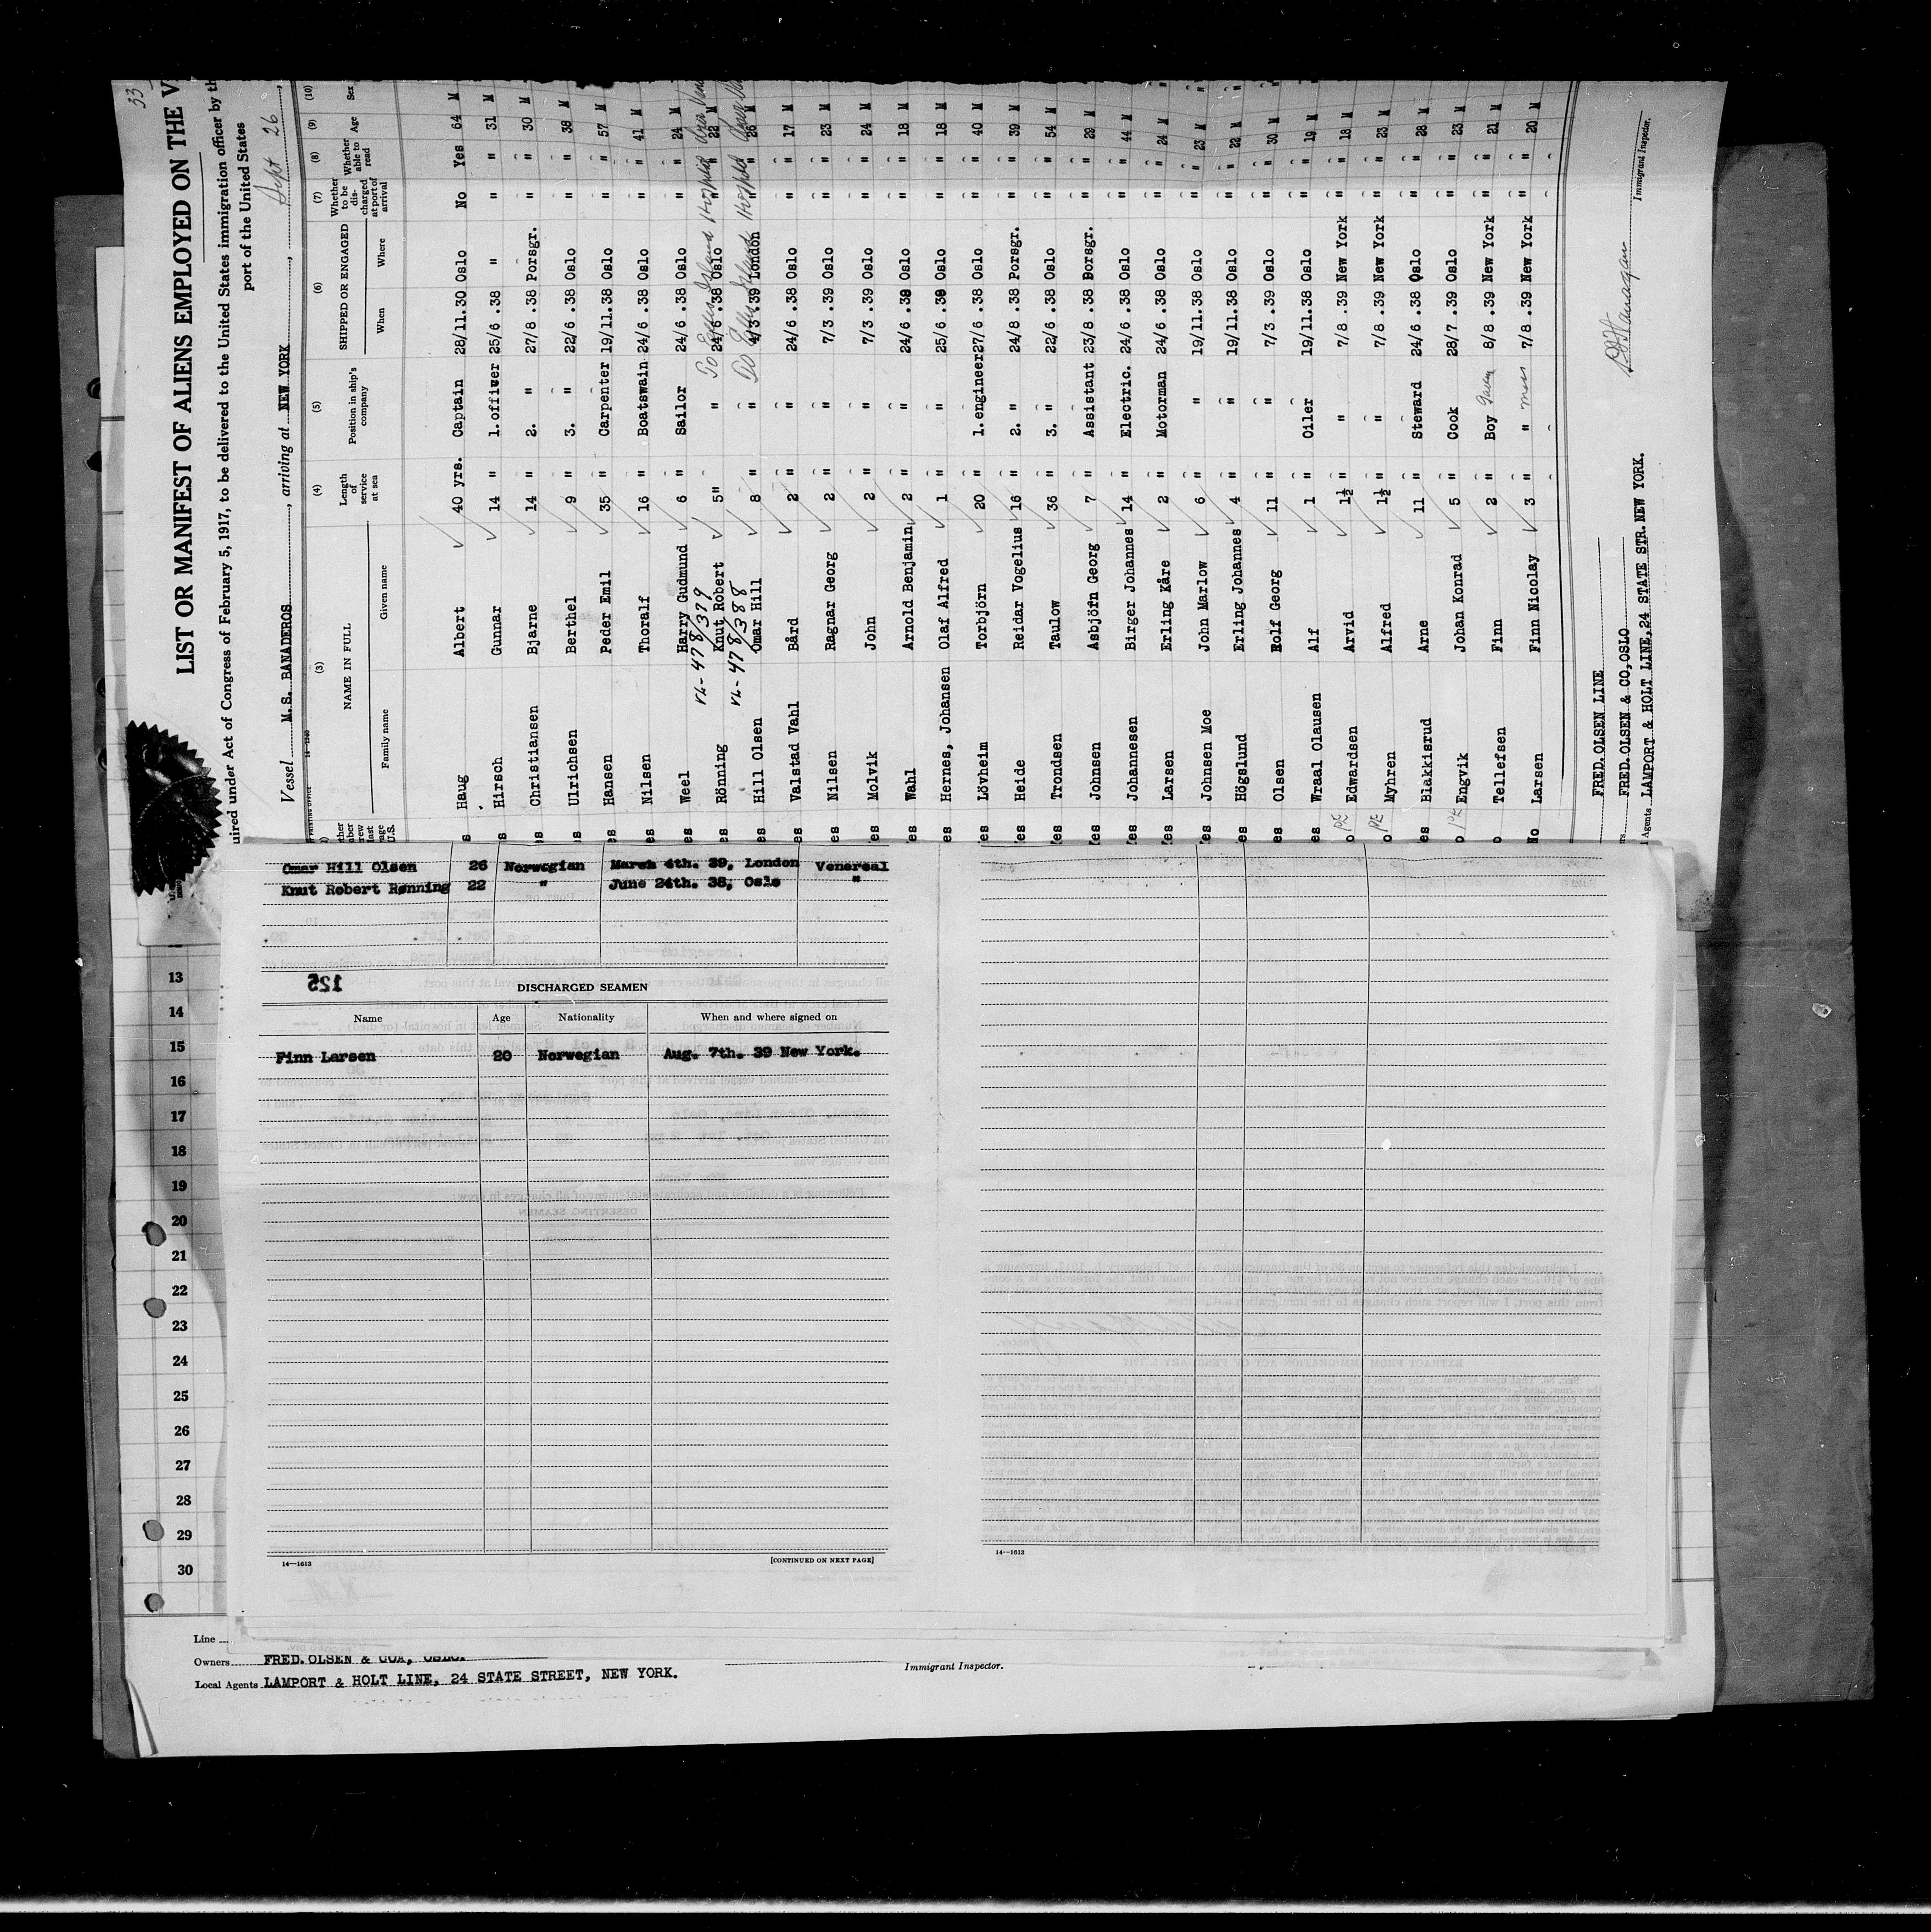 33
LIST OR MANIFEST OF ALIENS EMPLOYED ON THE V
uired under Act of Congress of February 5, 1917, to be delivered to the United States immigration officer by th
port of the United States
Vessel M.S. BANADEROS, arriving at NEW YORK, Sept 26,
(3) (4) (5) (6) (7) (8) (9) (10)
NAME IN FULL Length of service at sea Position in ship's company SHIPPED OR ENGAGED Whether to be discharged at port of arrival Whether able to read Age Sex
Family name Given name When Where
Haug Albert 40 yrs. Captain 28/11.30 Oslo No Yes 64 M
Hirsch Gunnar 14 " 1. officer 25/6 .38 " " " 31 M
Christiansen Bjarne 14 " 2. " 27/8 .38 Porsgr. " " 30 M
Ulrichsen Berthel 9 " 3. " 22/6 .38 Oslo " " 38 M
es Hansen Peder Emil 35 " Carpenter 19/11.38 Oslo " " 57 M
es Nilsen Thoralf 16 " Boatswain 24/6 .38 Oslo " " 41 M
es Weel Harry Gudmund 6 " Sailor 24/6 .38 Oslo " " 24 M
es Rönning Knut Robert 5" " 24/6 .38 Oslo " " 22 M
es Hill Olsen Omar Hill 8 " " 4/3 .39 London " " 26 M
es Valstad Vahl Bård 2 " " 24/6 .38 Oslo " " 17 M
es Nilsen Ragnar Georg 2 " " 7/3 .39 Oslo " " 23 M
es Molvik John 2 " " 7/3 .39 Oslo " " 24 M
es Wahl Arnold Benjamin 2 " " 24/6 .38 Oslo " " 18 M
es Hernes, Johansen Olaf Alfred 1 " " 25/6 .38 Oslo " " 18 M
es Lövheim Torbjörn 20 " 1. engineer 27/6 .38 Oslo " " 40 M
es Heide Reidar Vogelius 16 " 2. " 24/8 .38 Porsgr. " " 39 M
es Trondsen Taulow 36 " 3. " 22/6 .38 Oslo " " 54 M
es Johnsen Asbjörn Georg 7 " Assistant 23/8 .38 Porsgr. " " 29 M
es Johannesen Birger Johannes 14 " Electric. 24/6 .38 Oslo " " 44 M
es Larsen Erling Kåre 2 " Motorman 24/6 .38 Oslo " " 24 M
es Johnsen Moe John Marlow 6 " " 19/11.38 Oslo " " 23 M
es Högslund Erling Johannes 4 " " 19/11.38 Oslo " " 22 M
es Olsen Rolf Georg 11 " " 7/3 .39 Oslo " " 30 M
es Wraal Olausen Alf 1 " Oiler 19/11.38 Oslo " " 19 M
o PE Edwardsen Arvid 1½ " " 7/8 .39 New York " " 18 M
o PE Myhren Alfred 1½ " " 7/8 .39 New York " " 23 M
es Blakkisrud Arne 11 " Steward 24/6 .38 Oslo " " 28 M
o PE Engvik Johan Konrad 5 " Cook 28/7 .39 Oslo " " 23 M
o Tellefsen Finn 2 " Boy 8/8 .39 New York " " 21 M
No Larsen Finn Nicolay 3 " " mess 7/8 .39 New York " " 20 M
To Ellis Island Hospital
To Ellis Island Hospital
VL-478/379
VL-478/388
FRED. OLSEN LINE
FRED. OLSEN & CO, OSLO
Agents LAMPORT & HOLT LINE, 24 STATE STR. NEW YORK.
Immigrant Inspector.
Omar Hill Olsen 26 Norwegian March 4th. 39, London Venereal
Knut Robert Rønning 22 " June 24th. 38, Oslo "
125
DISCHARGED SEAMEN
Name Age Nationality When and where signed on
Finn Larsen 20 Norwegian Aug. 7th. 39 New York.
14—1613 [CONTINUED ON NEXT PAGE]
14—1613
13
14
15
16
17
18
19
20
21
22
23
24
25
26
27
28
29
30
Line
Owners FRED. OLSEN & CO
Local Agents LAMPORT & HOLT LINE, 24 STATE STREET, NEW YORK.
Immigrant Inspector.